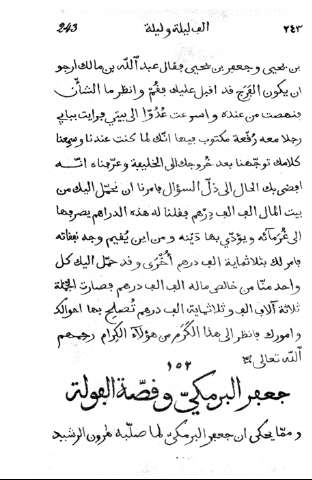 243 الف ليلة وليلة ٢٤٣
بن يحيى وجعفر بن يحيى فقال عبد اللّه بن مالك ارجو
ان يكون الفرج قد اقبل عليك فقُمْ وانظر ما الشأن
فنهضت من عنده واسرعت عُدُوًا الى بيتي فرايت ببابي
رجلا معه رقعة مكتوب فيها انّك لما كنت عندنا وسمعنا
كلامك توجّهنا بعد خروجك الى الخليفة وعرّفناه انّـه
افضى بك الحال الى ذلّ السؤال فامرنا ان نحمّل اليك من
بيت المال الف الف درهم فقلنا له هذه الدراهم يصرفها
الى غُرَمآئه ويؤدّي بها دَينه ومن اين يقيم وجه نفقاته
فامر لك بثلثماية الف درهم أُخْرَى وقد حمّل اليك كل
واحد منّا من خالص ماله الف الف درهم فصارت الجملة
ثلاثة آلاف الف وثلثماية الف درهم تُصلِح بها احوالك
وامورك فانظر الى هذا الكَرَم من هؤلآء الكرام رحمهم
اللّه تعالى
١٥٢
جعفر البرمكيّ وقصّة الفولة
وممّا يحكى ان جعفر البرمكيّ لما صلّبه لهرون الرشيد